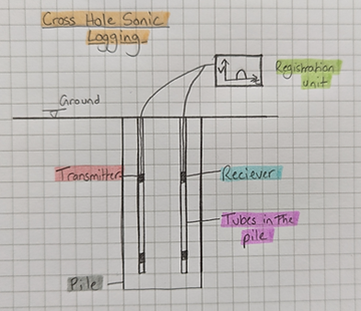 Cross Hole Sonic
Logging
Registration
unit
Ground
Transmitter
Reciever
Tubes in The
pile
Pile